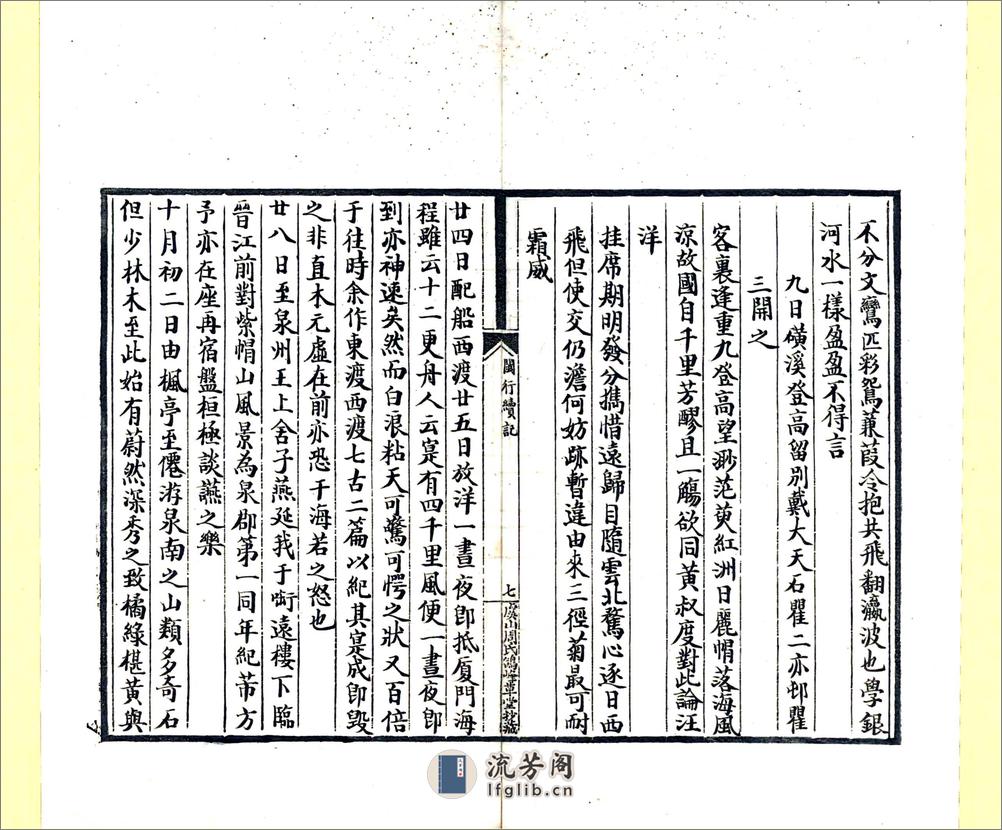 不分文鸞匹彩鴛蒹葭冷抱共飛翻瀛波也學銀
河水一樣盈盈不得言
九日磺溪登高留別戴大天石瞿二亦邨瞿
三開之
客裏逢重九登高望渺茫萸紅洲日麗帽落海風
涼故國自千里芳醪且一觴欲同黃叔度對此論汪
洋
挂席期明發分攜惜遠歸目隨雲北騖心逐日西
飛但使交仍澹何妨跡暫違由來三徑菊最可耐
霜威
閩行續記
七
虞山周氏鴿峰草堂鈔藏
廿四日配船西渡廿五日放洋一晝夜卽抵厦門海
程雖云十二更舟人云寔有四千里風便一晝夜卽
到亦神速矣然而白浪粘天可驚可愕之狀又百倍
于往時余作東渡西渡七古二篇以紀其寔成卽毀
之非直木元虛在前亦恐干海若之怒也
廿八日至泉州王上舍子燕延我于嘯遠樓下臨
晉江前對紫帽山風景為泉郡第一同年紀芾方
予亦在座再宿盤桓極談讌之樂
十月初二日由楓亭至僊游泉南之山類多奇石
但少林木至此始有蔚然深秀之致橘綠椹黃與
流芳阁
lfglib.cn